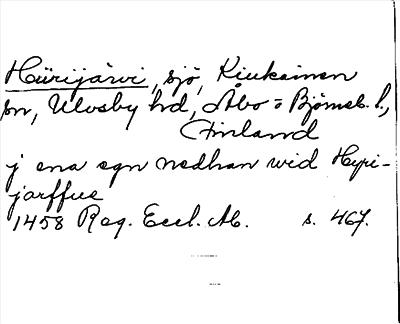 Hiirijärvi, sjö, Kiukainen
sn, Ulvsby hd, Åbo = Björneb. l.,
Finland
j ena egn nedhan wid Hyri-
jarffue
1458 Reg. Eccl. Ab. s. 467.